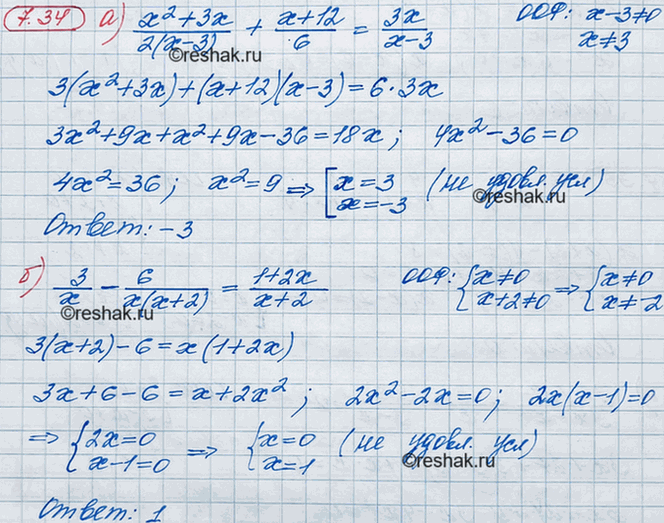 7.34 а) (x²+3x)/(2(x-3)) + (x+12)/6 = 3x/(x-3) ООФ: x-3≠0
x≠3
©reshak.ru
3(x²+3x)+(x+12)(x-3)=6·3x
3x²+9x+x²+9x-36=18x; 4x²-36=0
4x²=36; x²=9 ⇒ [x=3 (не удовл. усл)
x=-3
©reshak.ru
Ответ: -3
б) 3/x - 6/(x(x+2)) = (1+2x)/(x+2) ООФ: {x≠0 ⇒ {x≠0
x+2≠0 x≠-2
©reshak.ru
3(x+2)-6=x(1+2x)
3x+6-6=x+2x²; 2x²-2x=0; 2x(x-1)=0
⇒ {2x=0 ⇒ {x=0 (не удовл. усл)
x-1=0 x=1
©reshak.ru
Ответ: 1